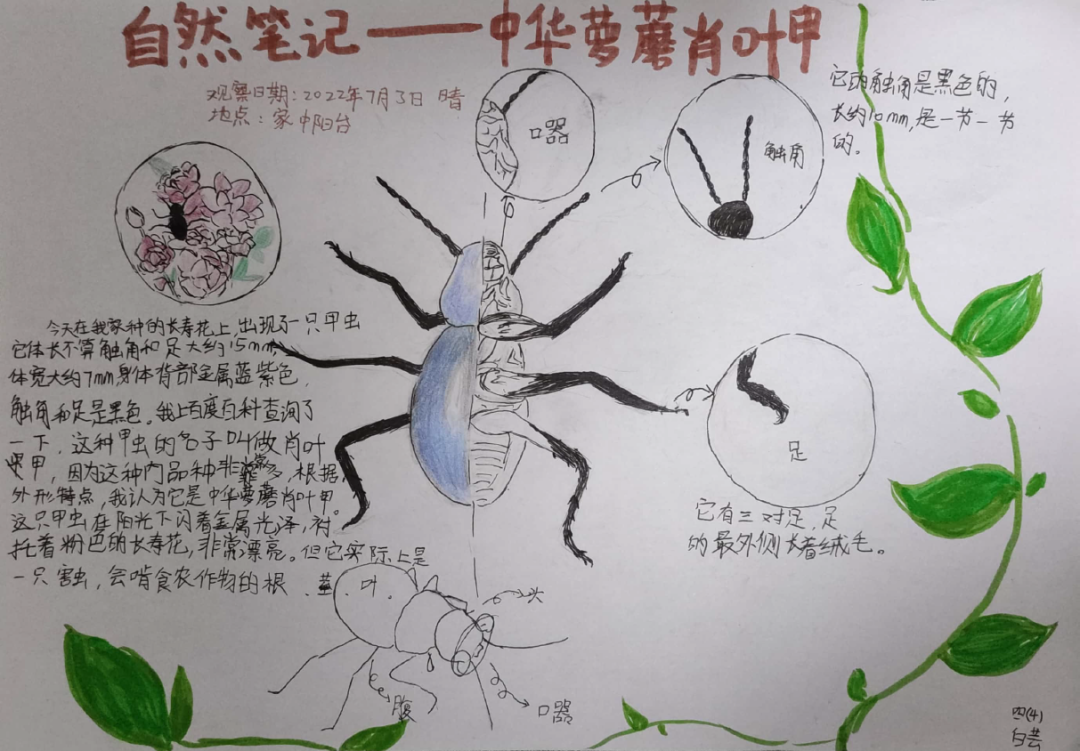 自然笔记——中华萝藦肖叶甲
观察日期:2022年7月3日 晴
地点:家中阳台
口器
触角
它的触角是黑色的,
长约10mm,是一节一节
的。
今天在我家种的长寿花上,出现了一只甲虫
它体长不算触角和足大约15mm,
体宽大约7mm身体背部金属蓝紫色,
触角和足是黑色。我上百度百科查询了
一下,这种甲虫的名子叫做肖叶
甲,因为这种门品种非常多,根据
外形特点,我认为它是中华萝藦肖叶甲。
这只甲虫在阳光下闪着金属光泽,衬
托着粉色的长寿花,非常漂亮。但它实际上是
一只害虫,会啃食农作物的根、茎、叶。
足
它有三对足,足
的最外侧长着绒毛。
头
腹
口器
四(4)
白芸